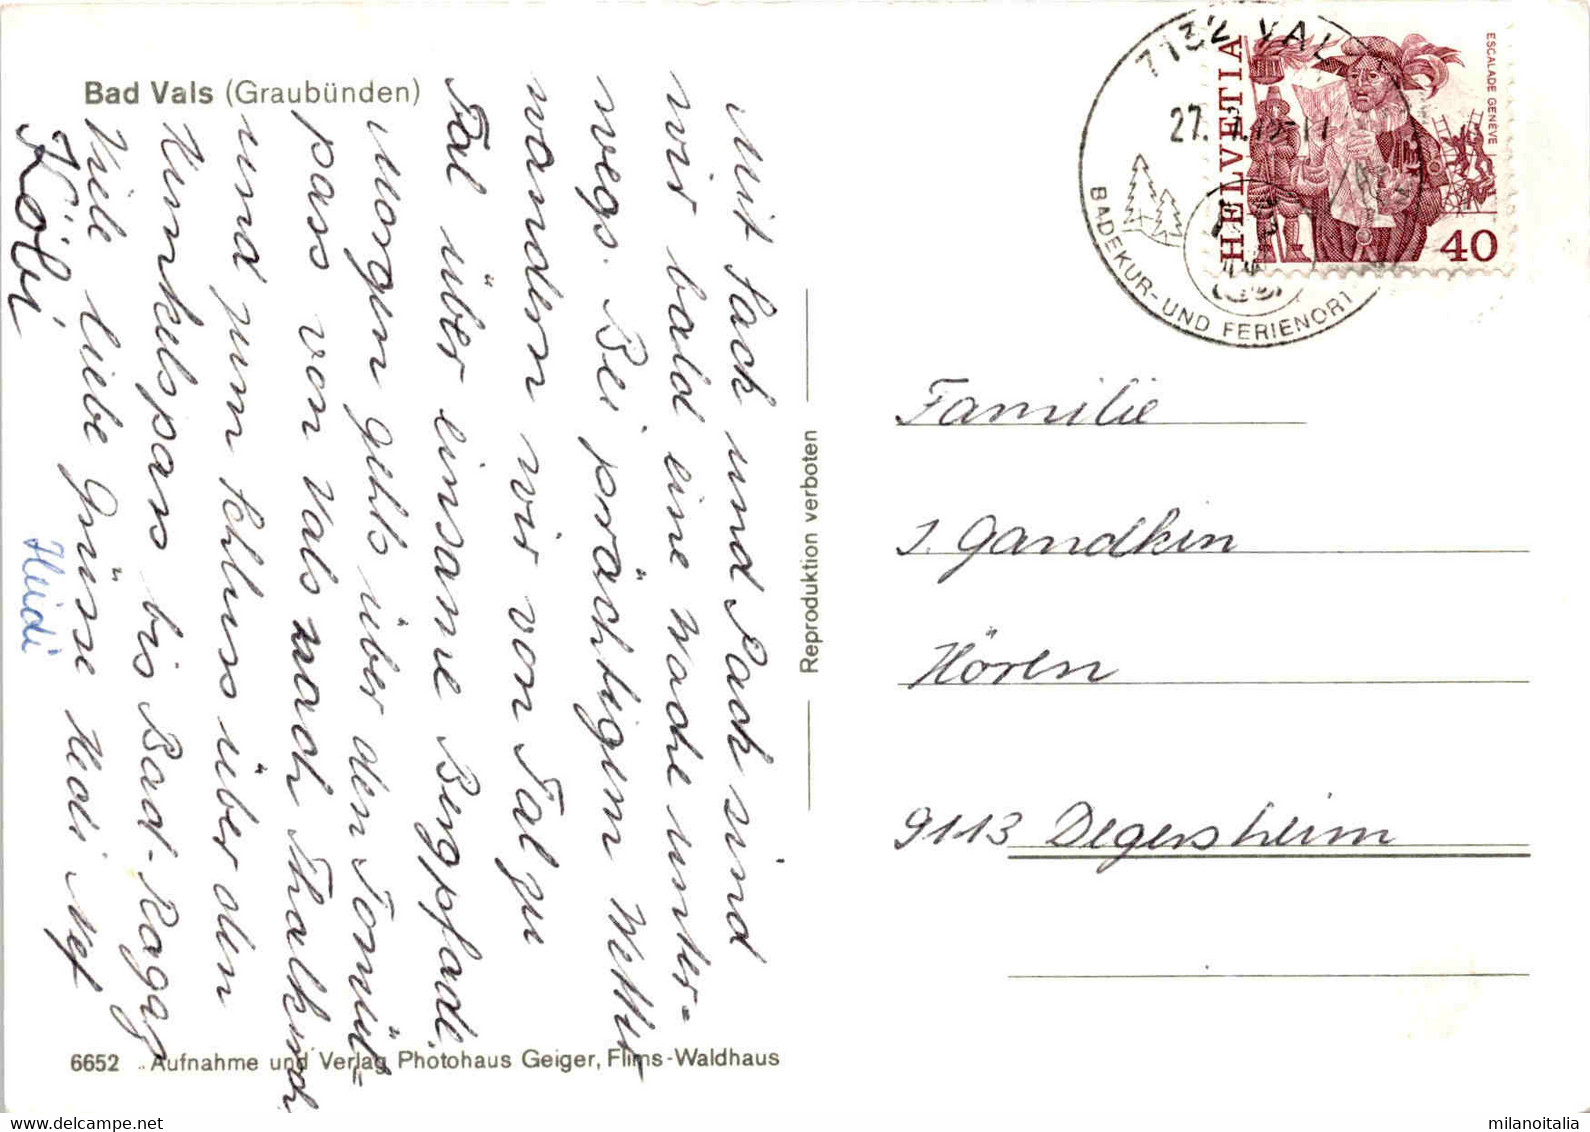 Bad Vals (Graubünden)
Mit Sack und Pack sind
wir bald eine Woche unter=
wegs. Bei prächtigem Wetter
wandern wir von Tal zu
Tal über einsame Bergpfade.
Morgen gehts über den Tomül=
pass von Vals nach Thalkirch
und zum Schluss über den
Kunkelspass bis Bad-Ragaz
Viele liebe Grüsse Hedi Nef
Köbi
Heidi
6652 Aufnahme und Verlag Photohaus Geiger, Flims-Waldhaus
Reproduktion verboten
7132 VALS
27.
BADEKUR- UND FERIENORT
HELVETIA
ESCALADE GENEVE
40
Familie
J. Gandkin
Hören
9113 Degersheim
milanoitalia